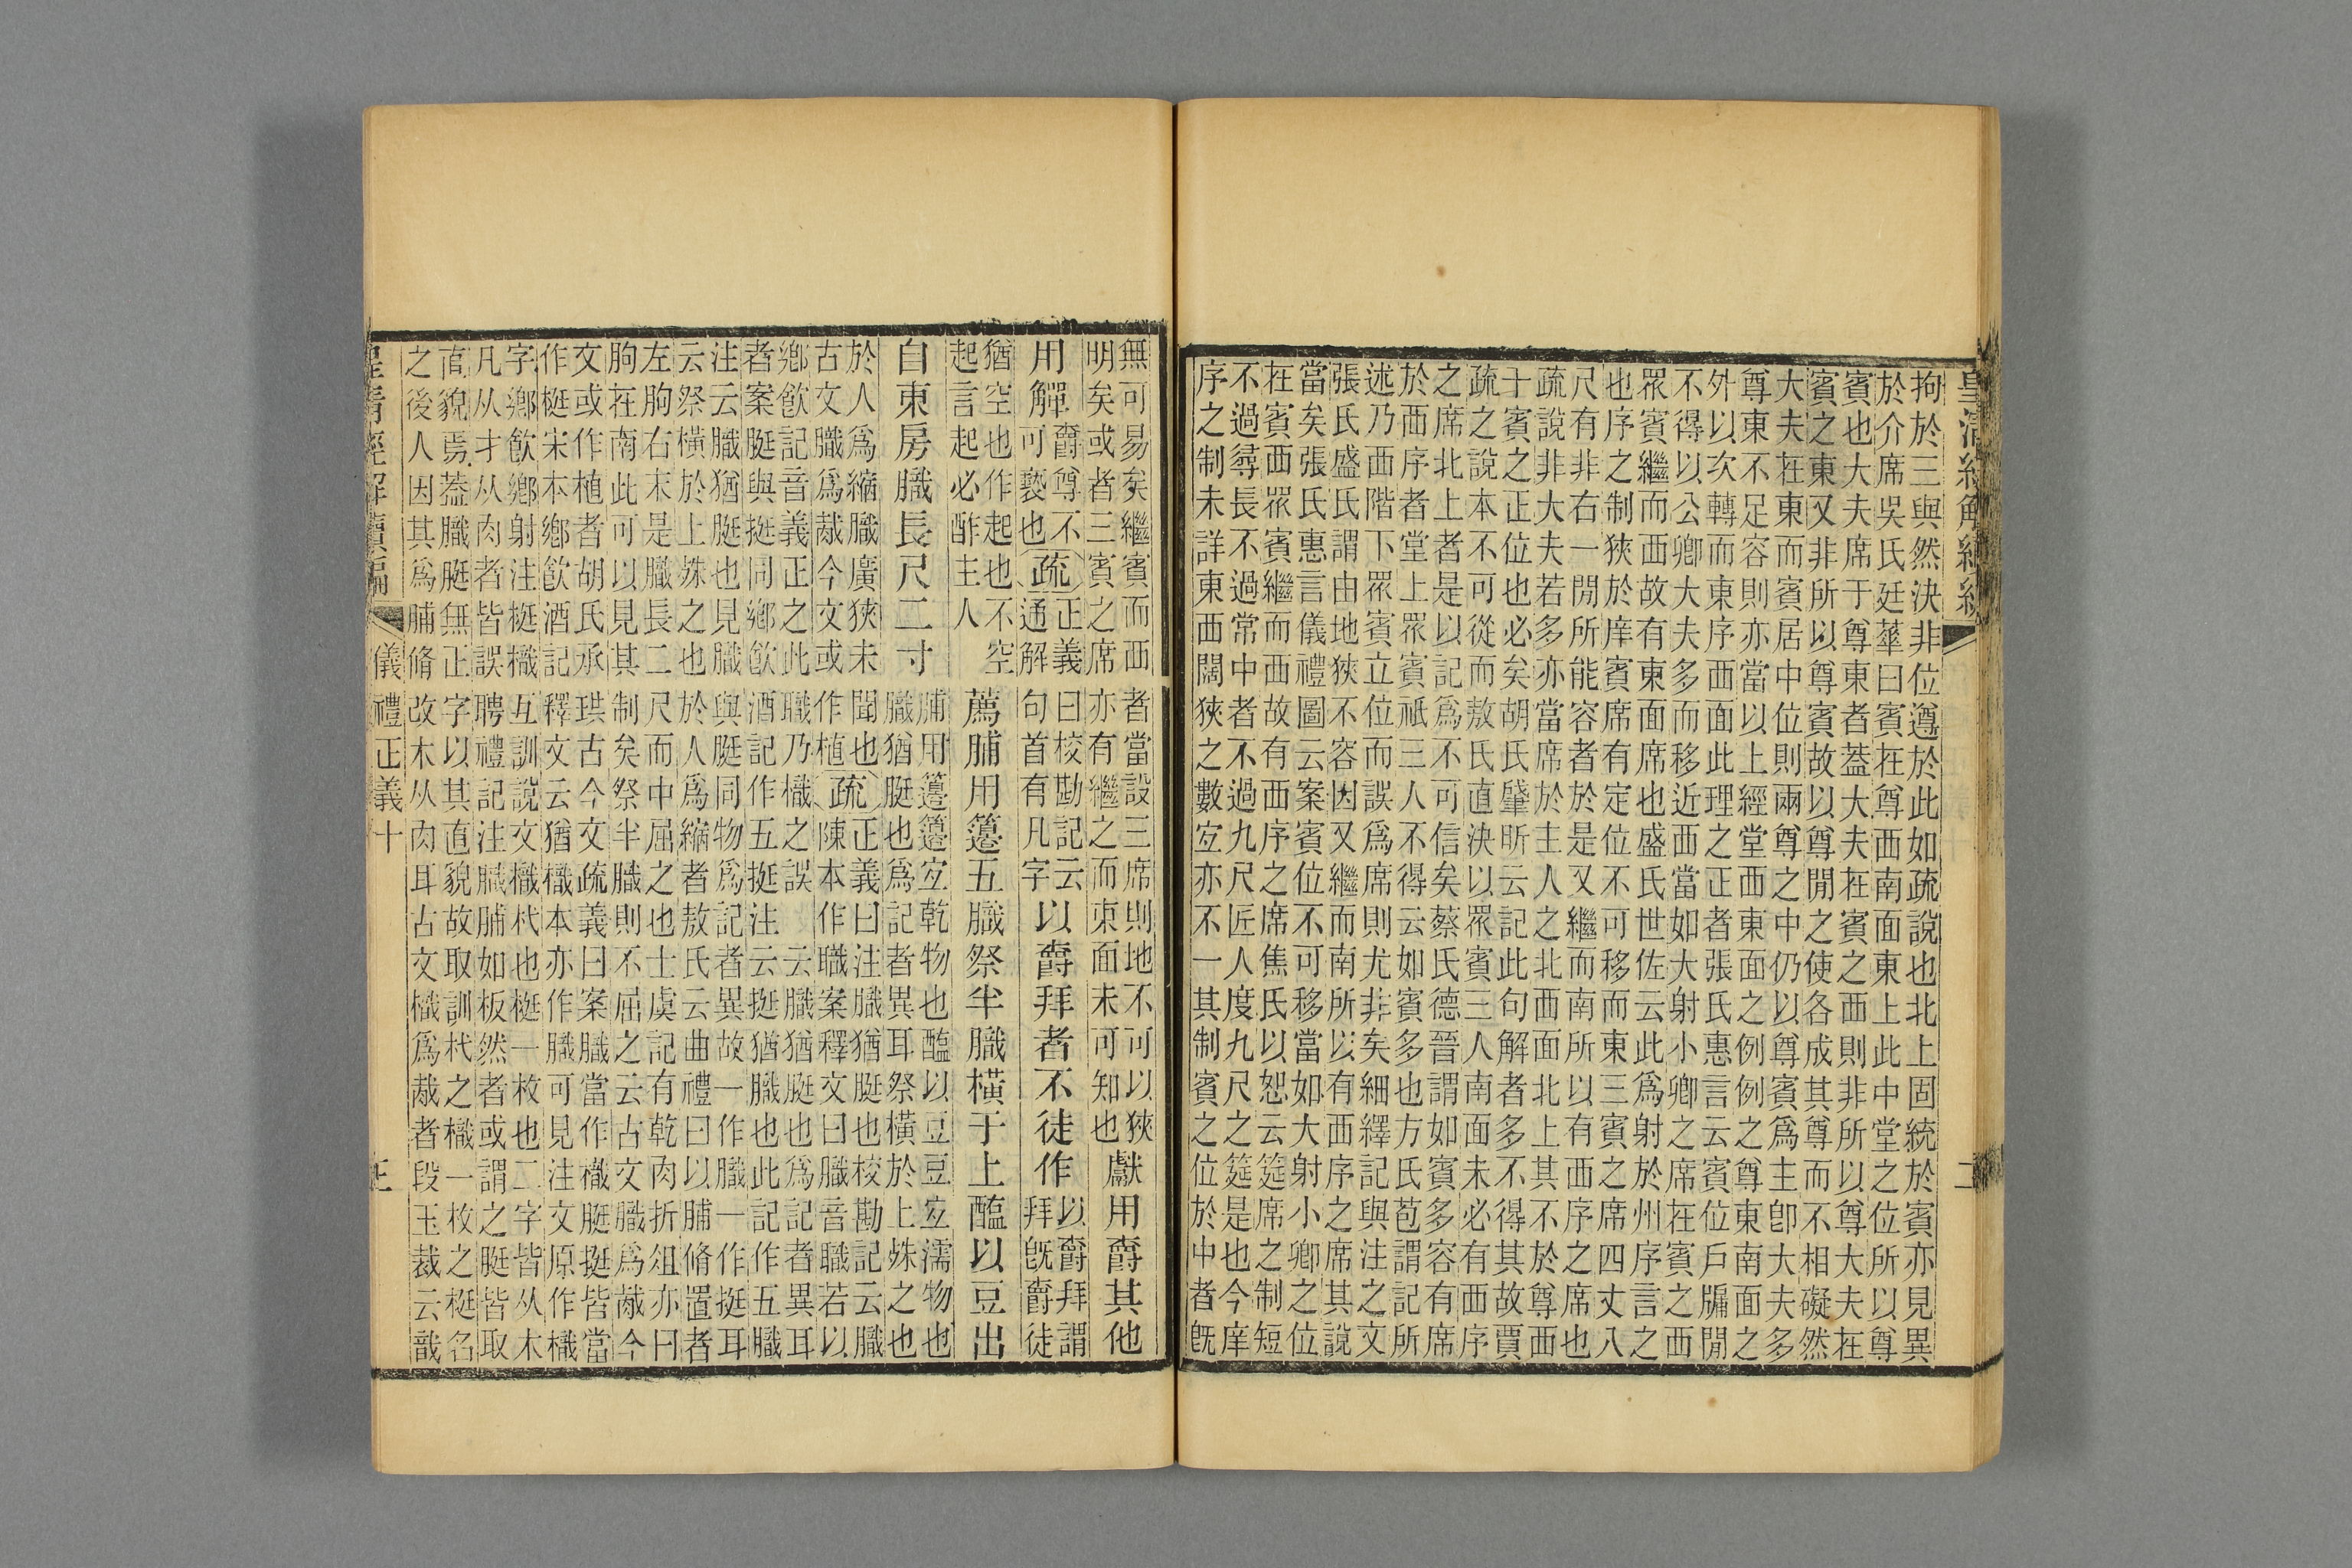 皇清經解續編
拘於三與然決非位遵於此如疏說也北上固統於賓亦見異
於介席吳氏廷華曰賓在尊西南面東上此中堂之位所以尊
賓也大夫席于尊東者蓋大夫在賓之西則非所以尊大夫在
賓之東又非所以尊賓故以尊閒之使各成其尊而不相礙然
大夫在東而賓居中位則兩尊之中仍以尊賓爲主卽大夫多
尊東不足容則亦當以上經堂西東面之例例之尊東南面之
外以次轉而東序西面此理之正者張氏惠言云賓位戶牖閒
不得以公卿大夫多而移近西當如大射小卿之席在賓之西
眾賓繼而西故有東面席也盛氏世佐云此爲射於州序言之
也序之制狹於庠賓席有定位不可移而東三賓之席四丈八
尺有非右一閒所能容者於是又繼而南所以有西序之席也
疏說非大夫若多亦當席於主人之北西面北上其不於尊西
十賓之正位也必矣胡氏肇昕云記此句解者多不得其故賈
疏之說本不可從而敖氏直決以眾賓三人南面未必有西序
之席北上者是以記爲不可信矣蔡氏德晉謂如賓多容有席
於西序者堂上眾賓祇三人不得云如賓多也方氏苞謂記所
述乃西階下眾賓立位而誤爲席則尤非矣細繹記與注之文
張氏盛氏謂由地狹不容因又繼而南所以有西序之席其說
當矣張氏惠言儀禮圖云案賓位不可移當如大射小卿之位
在賓西眾賓繼而西故有西序之席焦氏以恕云筵席之制短
不過尋長不過常中者不過九尺匠人度九尺之筵是也今庠
序之制未詳東西闊狹之數宐亦不一其制賓之位於中者旣
無可易矣繼賓而西者當設三席則地不可以狹
明矣或者三賓之席亦有繼之而東面未可知也
獻用爵其他
用觶
爵尊不
可褻也
疏
正義曰校勘記云
通解句首有凡字
以爵拜者不徒作
以爵拜謂
拜旣爵徒
猶空也作起也不空
起言起必酢主人
薦脯用籩五膱祭半膱橫于上醢以豆出
自東房膱長尺二寸
脯用籩籩宐乾物也醢以豆豆宐濡物也
膱猶脡也爲記者異耳祭橫於上殊之也
於人爲縮膱廣狹未聞也
古文膱爲胾今文或作植
疏
正義曰注膱猶脡也校勘記云膱
陳本作職案釋文曰膱音職若以
鄉飮記音義正之此職乃樴之誤 云膱猶脡也爲記者異耳
者案脡與挺同鄉飮酒記作五挺注云挺猶膱也此記作五膱
注云膱猶脡也見膱與脡同物爲記者異故一作膱一作挺耳
云祭橫於上殊之也於人爲縮者敖氏云曲禮曰以脯脩置者
左朐右末是膱長二尺而中屈之也士虞記有乾肉折俎亦曰
朐在南此可以見其制矣祭半膱則不屈之云古文膱爲胾今
文或作植者胡氏承珙古今文疏義曰案膱當作樴脡挺皆當
作梃宋本鄉飮酒記釋文云猶樴本亦作膱可見注文原作樴
字鄉飮鄉射注梃樴互訓說文樴杙也梃一枚也二字皆从木
凡从才从肉者皆誤聘禮記注膱脯如板然者或謂之脡皆取
直貌焉蓋膱脡無正字以其直貌故取訓杙之樴一枚之梃名
之後人因其爲脯脩改木从肉耳古文樴爲胾者段玉裁云戠
皇清經解續編
儀禮正義十